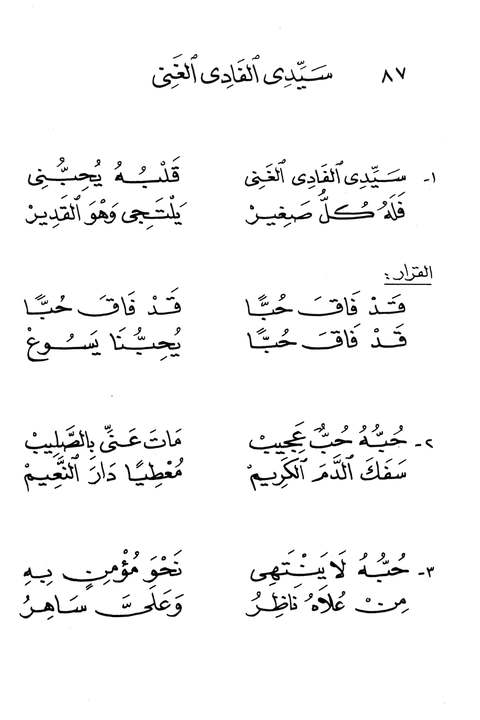 ٨٧ سَيِّدِى ٱلفَادِى ٱلغَنِى
١- سَيِّدِى ٱلفَادِى ٱلغَنِى قَلْبُهُ يُحِبُّنِى
فَلَهُ كُلُّ صَغِيرْ يَلْتَجِى وَهْوَ القَدِيرْ
القرار:
قَدْ فَاقَ حُبًّا قَدْ فَاقَ حُبًّا
قَدْ فَاقَ حُبًّا يُحِبُّنَا يَسُوعْ
٢- حُبُّهُ حُبٌّ عَجِيبْ مَاتَ عَنِّى بِالصَّلِيبْ
سَفَكَ ٱلدَّمَ ٱلكَرِيمْ مُعْطِيًا دَارَ ٱلنَّعِيمْ
٣- حُبُّهُ لَا يَنْتَهِى نَحْوَ مُؤْمِنٍ بِهِ
مِنْ عُلَاهُ نَاظِرُ وَعَلَىَّ سَاهِرُ